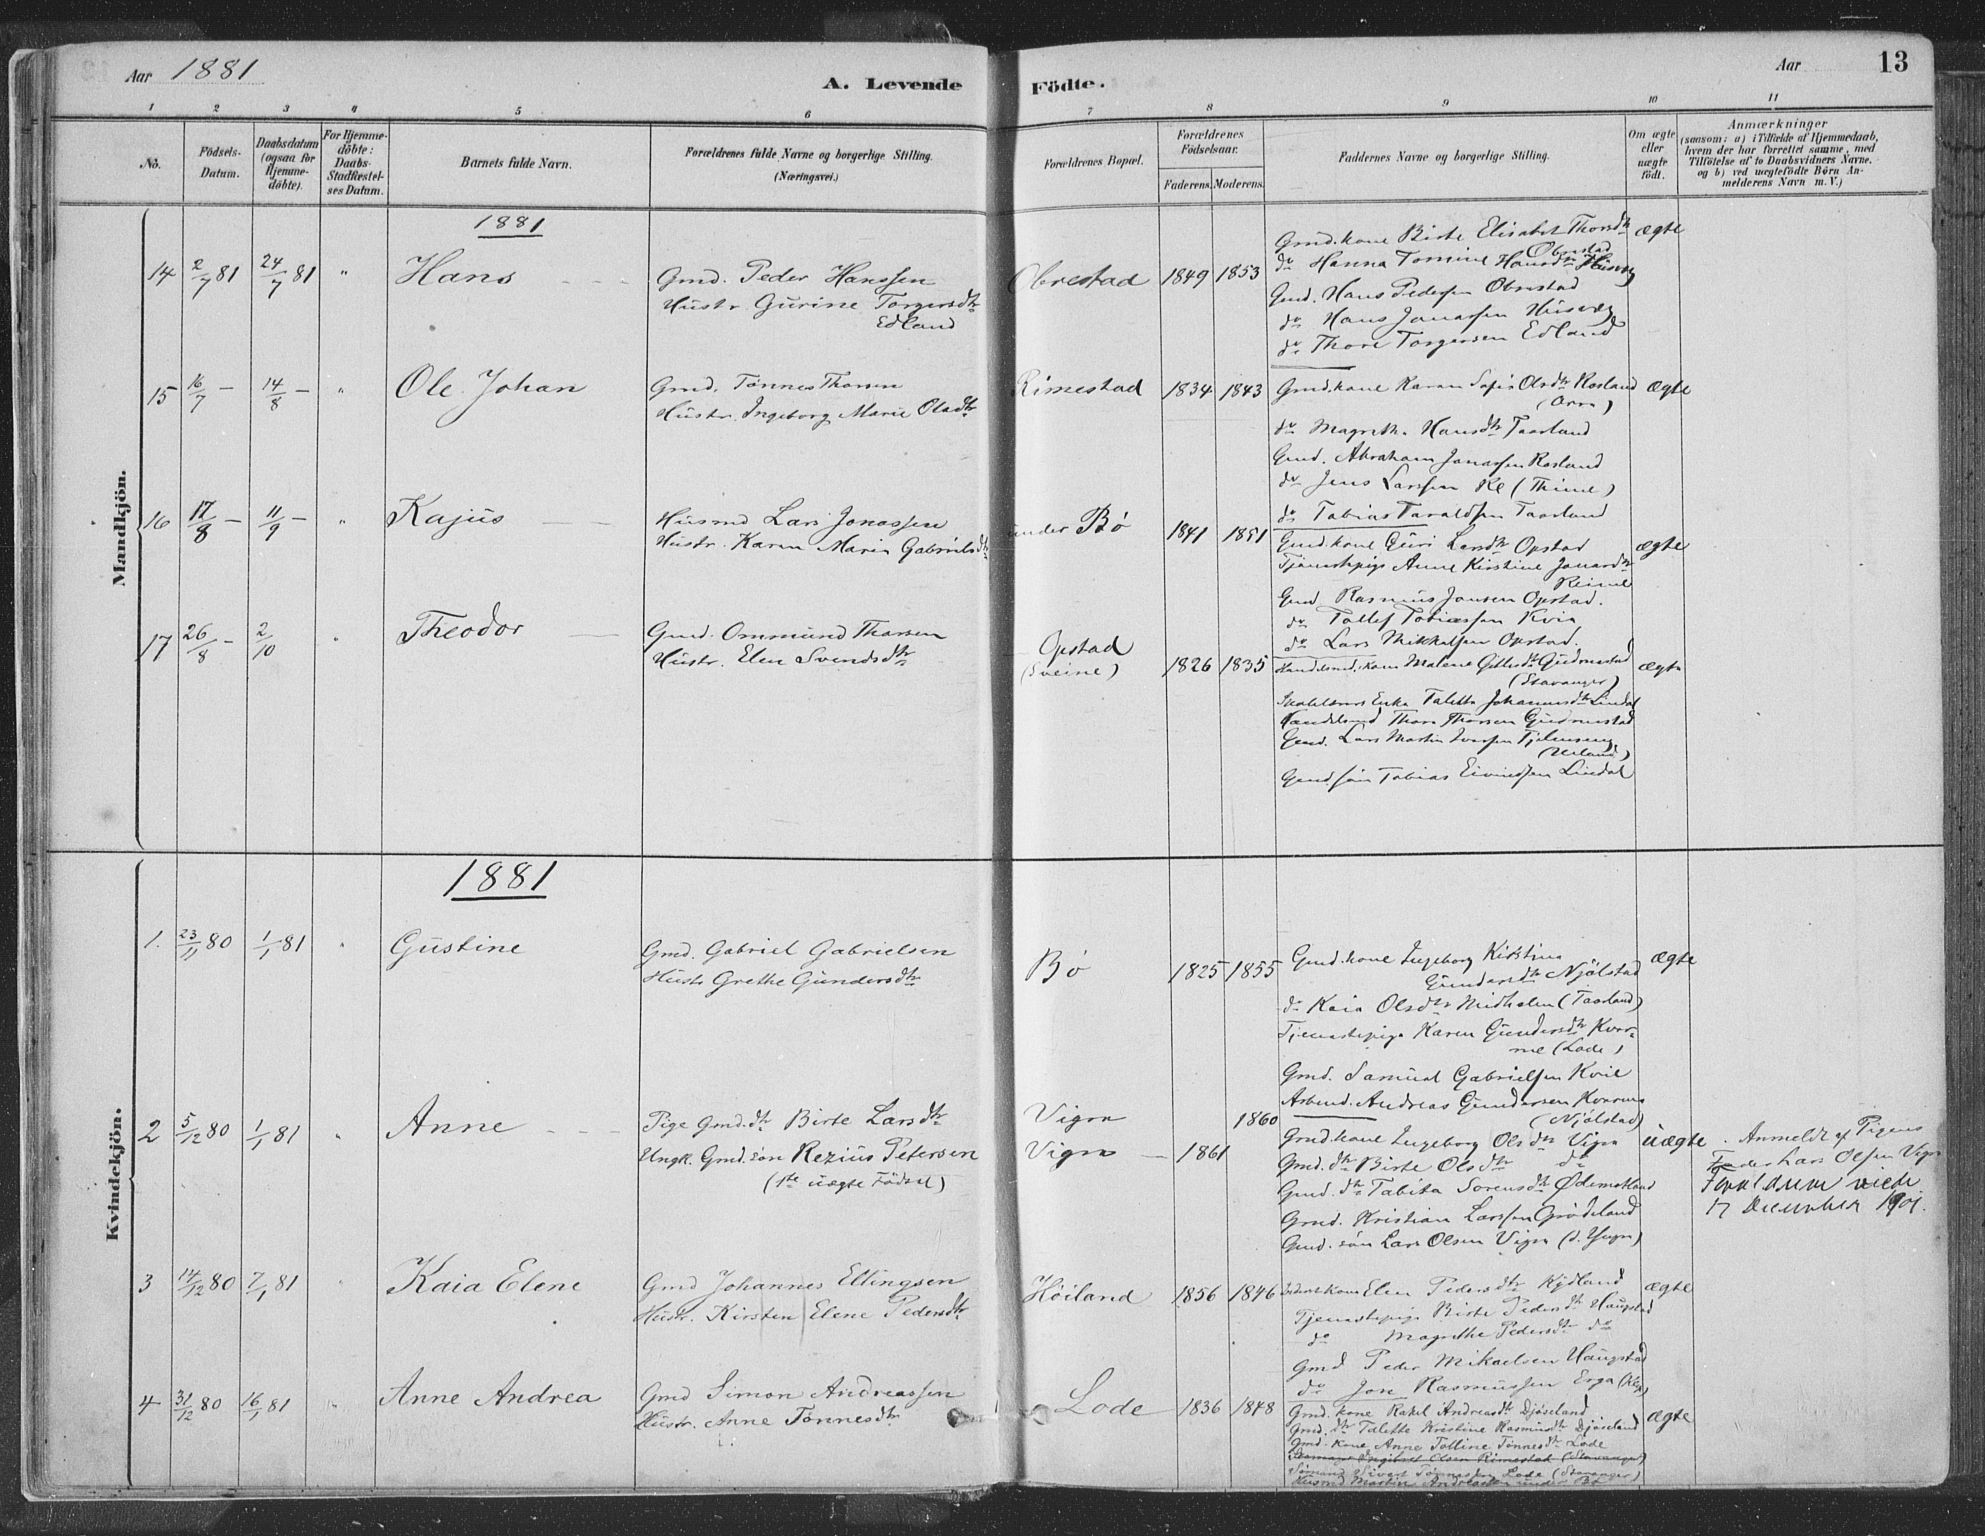 Aar 1881
A. Levende
Födte.
Aar
13
1 2 3 4 5 6 7 8 9 10 11
No.
Födsels-
Datum.
Daabsdatum
(ogsaa for
Hjemme-
döbte).
For Hjemme-
döbte:
Daabs-
Stadfæstel-
ses Datum.
Barnets fulde Navn.
Forældrenes fulde Navne og borgerlige Stilling.
(Næringsvei.)
Forældrenes Bopæl.
Forældrenes
Födselsaar.
Faderens. Moderens.
Faddernes Navne og borgerlige Stilling.
Om ægte
eller
uægte
født.
Anmærkninger
(saasom: a) i Tilfælde af Hjemmedaab,
hvem der har forrettet samme, med
Tilföielse af to Daabsvidners Navne.
og b) ved uægtefödte Börn An-
melderens Navn m. V.)
Mandkjön.
1881
14 2/7 81 24/7 81 " Hans
Gmd. Peder Hanssen
Hustr Gurine Torgersdtr
Edland
Obrestad 1849 1853
Gmd. kone Birte Elisabet Thorsdtr
Obrestad
do Hanna Tomine Hansdtr Husvæg
Gmd. Hans Pedersen Obrestad
do Hans Jonassen Husvæg
do Thore Torgersen Edland
ægte
15 16/7 — 14/8 — " Ole Johan
Gmd. Tönnes Thorsen
Hustr. Ingeborg Marie Olsdtr
Rimestad 1834 1843
Gmd. kone Karen Sofie Olsdtr Rosland
(Orre)
do Magrethe Hansdtr Taarland
Gmd. Abraham Jonassen Rosland
do Jens Larssen Re (Thime)
do Tobias Taraldsen Taarland
ægte
16 17/8 — 11/9 — " Kajus
Husmd Lars Jonassen
Hustr. Karen Marie Gabrielsdtr
under Bø 1841 1851
Gmd. kone Guri Larsdtr Opstad
Tjenestepige Anne Kirstine Jonasdtr
Reime
Gmd Rasmus Jonsen Opstad.
do Tollef Tobiassen Kvia
do Lars Mikkelsen Opstad.
ægte
17 26/8 — 2/10 " Theodor
Gmd. Ommund Thorsen
Hustr. Elen Svendsdtr
Opstad
(Sveine) 1826 1835
Handelsmd. kone Malene Gitlesdtr Gudmestad
(Stavanger)
Enke Taletta Johannesdtr Lindal
Handelsmd Thore Thorsen Gudmestad
Gmd. Lars Martin Iversen
Gmd. søn Tobias Eivindsen Lindal
ægte
Kvindekjön.
1881
1. 23/11 80 1/1 81 " Gustine
Gmd. Gabriel Gabrielsen
Hustr Grethe Gundersdtr
Bø 1825 1855
Gmd. kone Ingeborg Kirstine
Gundersdtr Njølstad
do Kaia Olsdtr Nedheim (Taarland)
Tjenestepige Karen Gundersdtr Kvar-
me (Lode)
Gmd. Samuel Gabrielsen Kvie
Arbmd. Andreas Gundersen Kvarme
(Njølstad)
ægte
2 5/12 80 1/1 81 " Anne
Pige Gmd. dtr Birte Larsdtr
Ungk. Gmd. søn Rezius Petersen
(1ste uægte Födsel)
Vigre 1860
Vigre — 1861
Gmd. kone Ingeborg Olsdtr Vigre
Gmd. dtr Birte Olsdtr do
Gmd. dtr Tabita Sorensdtr Ødemotland
Gmd. Kristian Larssen Grødeland
Gmd. søn Lars Olsen Vigre (d. Yngre)
uægte
Anmeldt af Pigens
Fader Lars Olsen Vigre
Forældrene viede
17 December 1901.
3 14/12 80 7/1 81 " Kaia Elene
Gmd Johannes Ellingsen
Hustr. Kirsten Elene Pedersdtr
Høiland 1856 1846
kone Elen Pedersdtr Kydland
Tjenestepige Birte Pedersdtr Haugstad
do Magrethe Pedersdtr do
Gmd Peder Mikaelsen Haugstad
do Jon Rasmussen Erga (Klep)
ægte
4 31/12 80 16/1 81 " Anne Andrea
Gmd Simon Andreassen
Hustr. Anne Tönnesdtr
Lode 1836 1848
Gmd. kone Rakel Andreasdtr Djøseland
Gmd. dtr Talette Kristine Rasmusdtr Djøseland
Gmd. kone Anne Tolline Tönnesdtr Lode
Ingebret Olsen Rimestad (Stavanger)
Sömand Sivert Tönnessen Lode (Stavanger)
Husmd Martin Andreassen under Bø
ægte